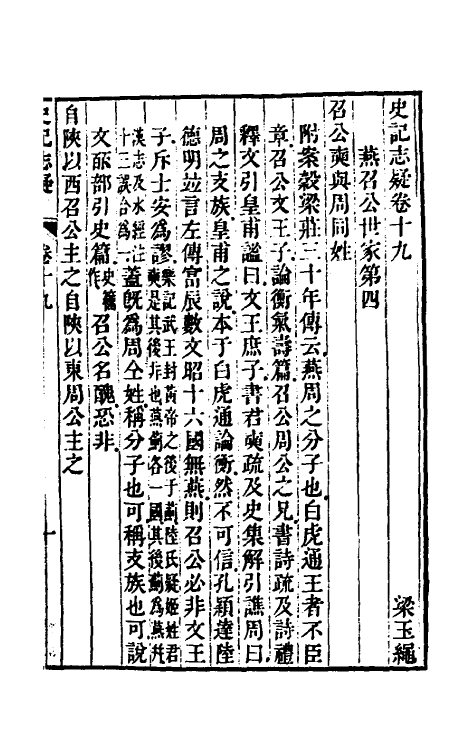 史記志疑卷十九
梁玉繩
燕召公世家第四
召公奭與周同姓
附案穀梁莊三十年傳云燕周之分子也白虎通王者不臣
章召公文王子論衡氣壽篇召公周公之兄書詩疏及詩禮
釋文引皇甫謐曰文王庶子書君奭疏及史集解引譙周曰
周之支族皇甫之說本于白虎通論衡然不可信孔穎達陸
德明竝言左傳富辰數文昭十六國無燕則召公必非文王
子斥士安爲謬樂記武王封黃帝之後于薊陸氏疑姬姓君
奭是其後非也燕薊各一國其後薊爲燕幷
漢志及水經注
十三誤合爲一蓋旣爲周仝姓稱分子也可稱支族也可說
文𥄎部引史篇史籒作召公名醜恐非
自陝以西召公主之自陝以東周公主之
史記志疑
卷十九
一